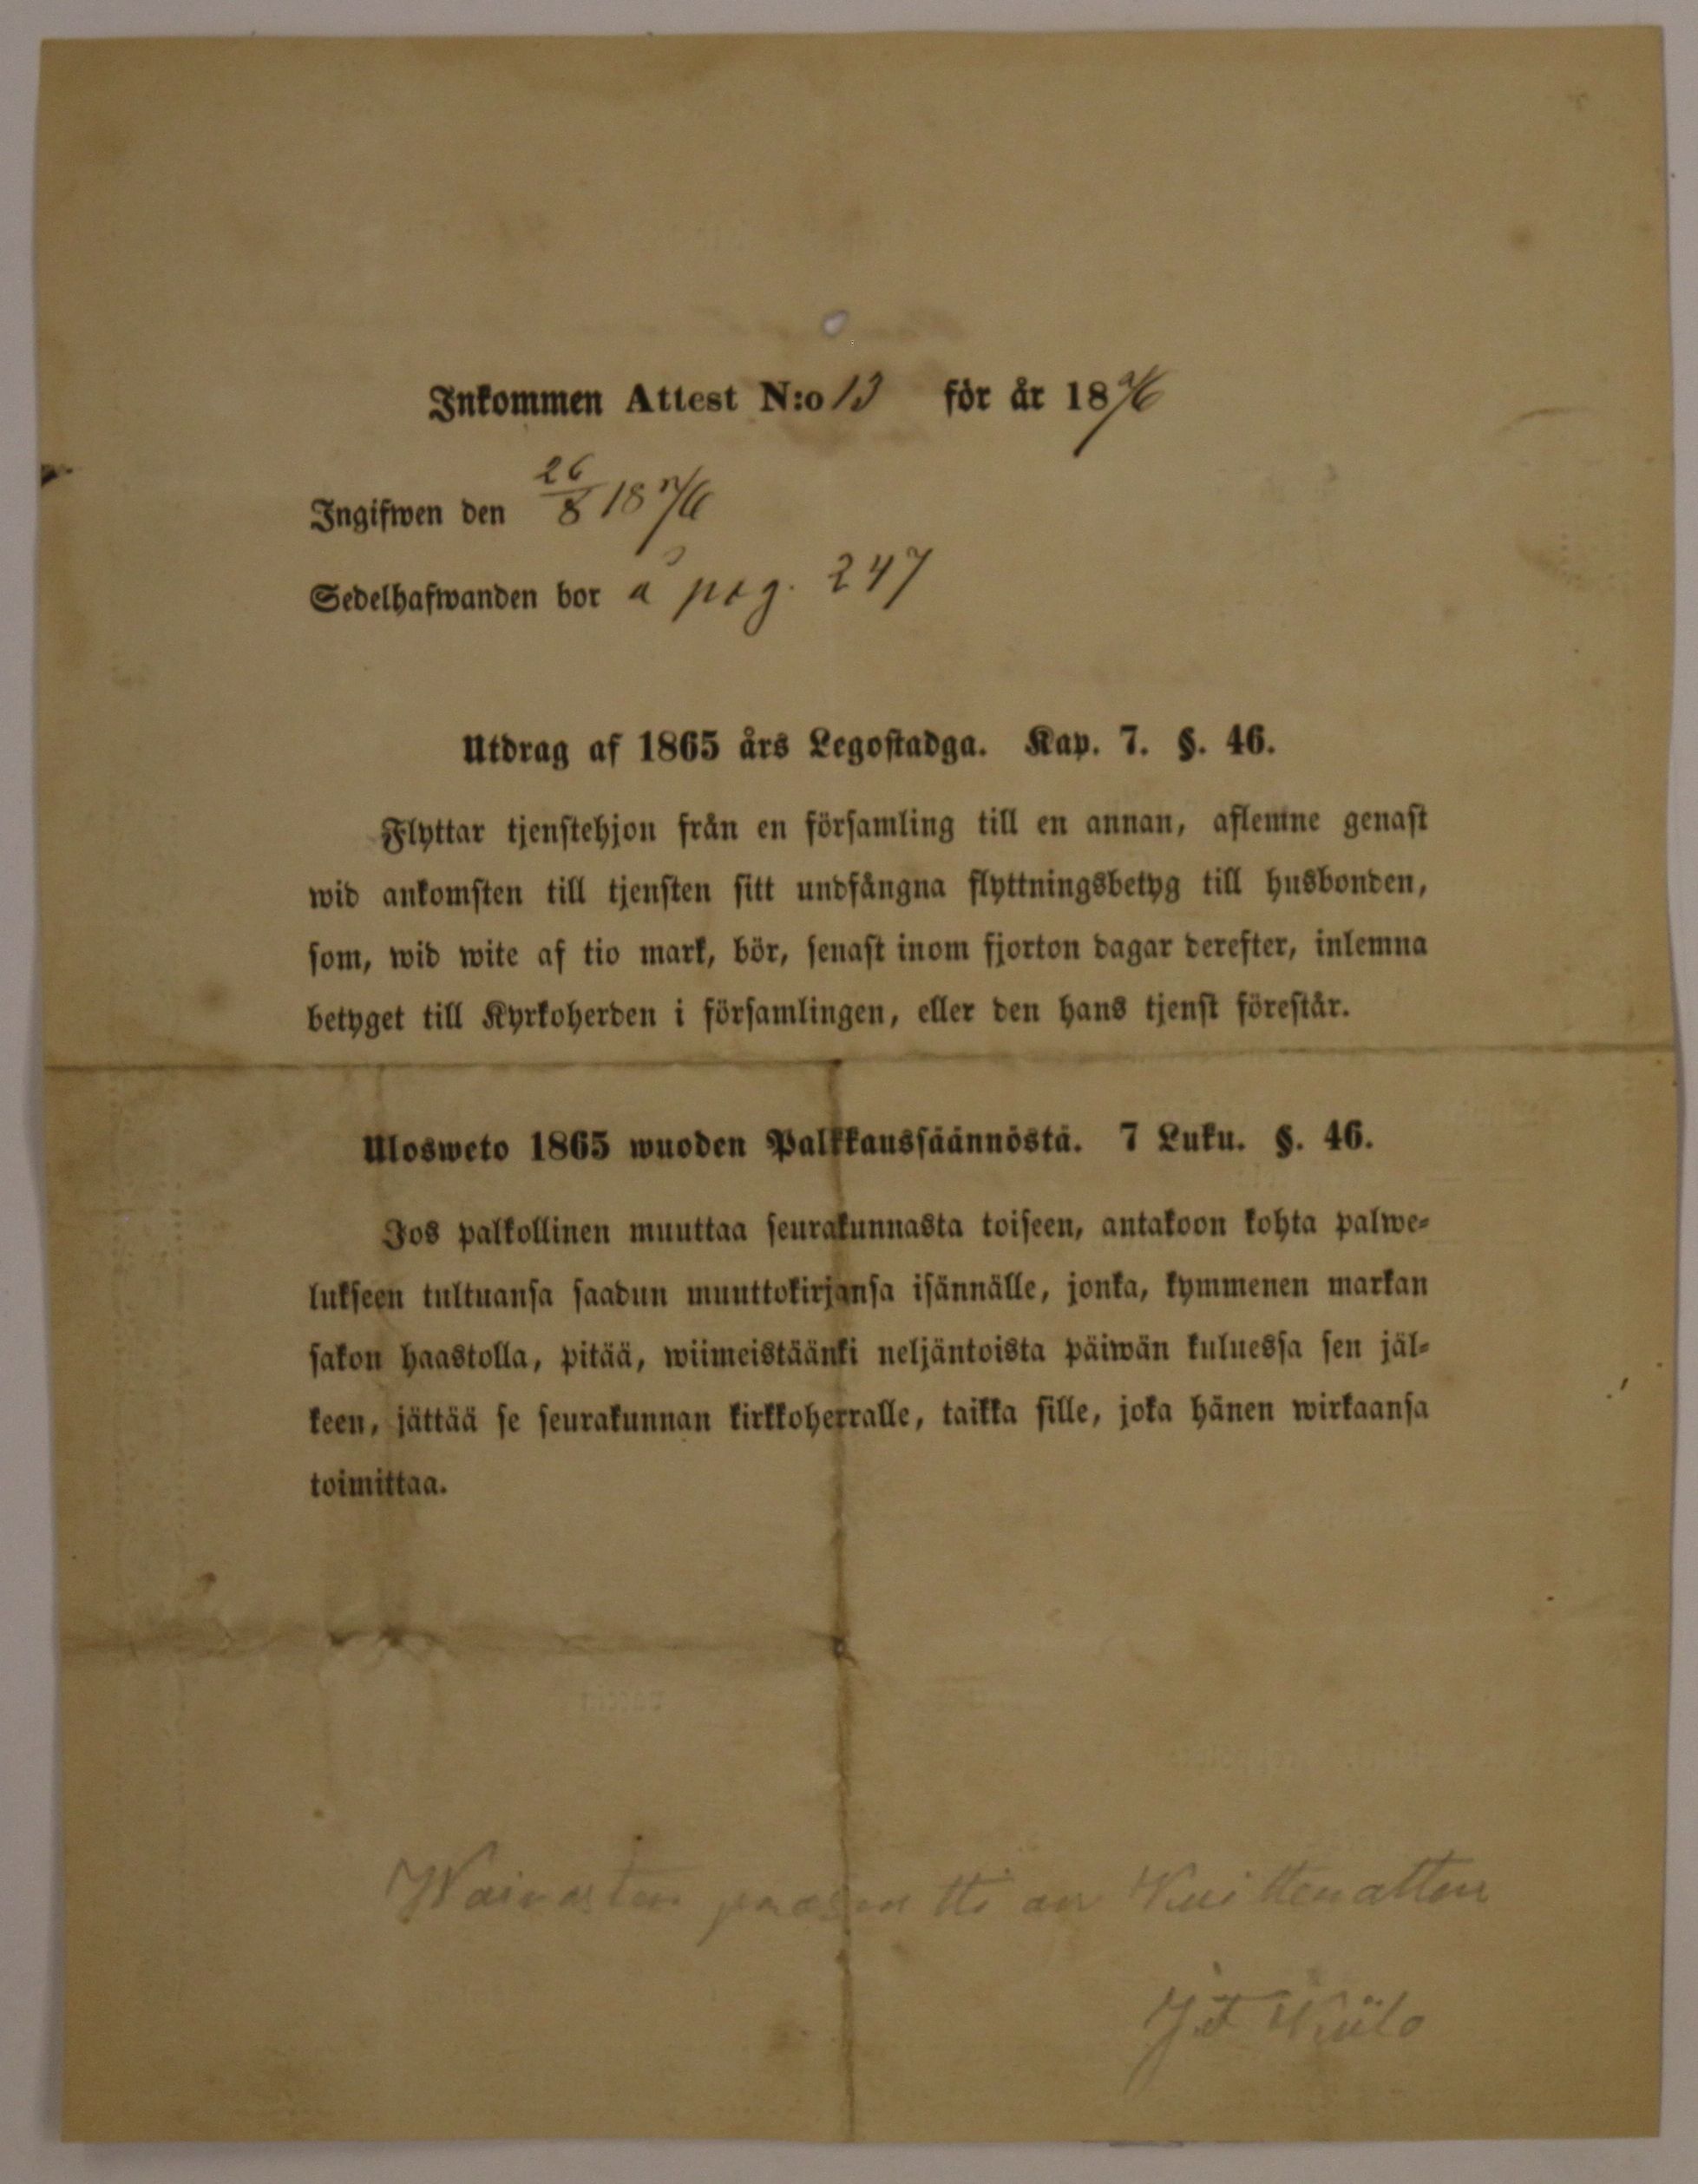 Inkommen Attest N:o 13 för år 1876
Ingifwen den 26/8 1876
Sedelhafwanden bor å pag. 247
Utdrag af 1865 års Legostadga. Kap. 7. §. 46.
Flyttar tjenstehjon från en församling till en annan, aflemne genast
wid ankomsten till tjensten sitt undfångna flyttningsbetyg till husbonden,
som, wid wite af tio mark, bör, senast inom fjorton dagar derefter, inlemna
betyget till Kyrkoherden i församlingen, eller den hans tjenst förestår.
Ulosweto 1865 wuoden Palkkaussäännöstä. 7 Luku. §. 46.
Jos palkollinen muuttaa seurakunnasta toiseen, antakoon kohta palwe-
lukseen tultuansa saadun muuttokirjansa isännälle, jonka, kymmenen markan
sakon haastolla, pitää, wiimeistäänki neljäntoista päiwän kuluessa sen jäl-
keen, jättää se seurakunnan kirkkoherralle, taikka sille, joka hänen wirkaansa
toimittaa.